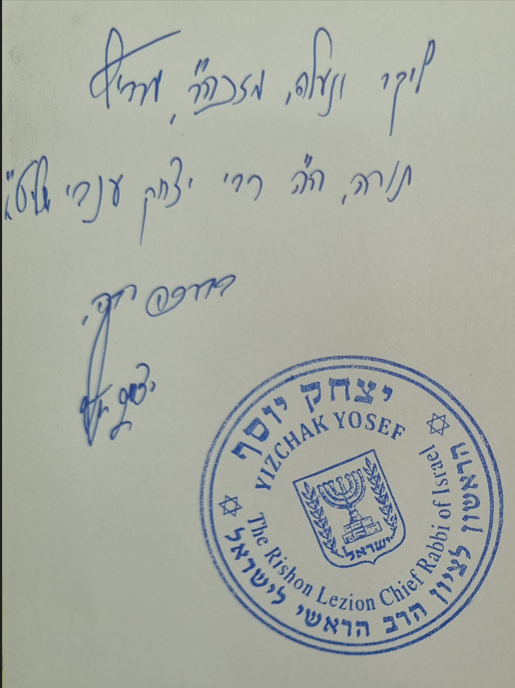 ליקר ונעלה, מזכה"ר, מרביץ
תורה, ה"ה רבי יצחק שליט"א
בברכה רבה,
יצחק יוסף
יצחק יוסף
YIZCHAK YOSEF
ישראל
The Rishon Lezion Chief Rabbi of Israel
הראשון לציון הרב הראשי לישראל